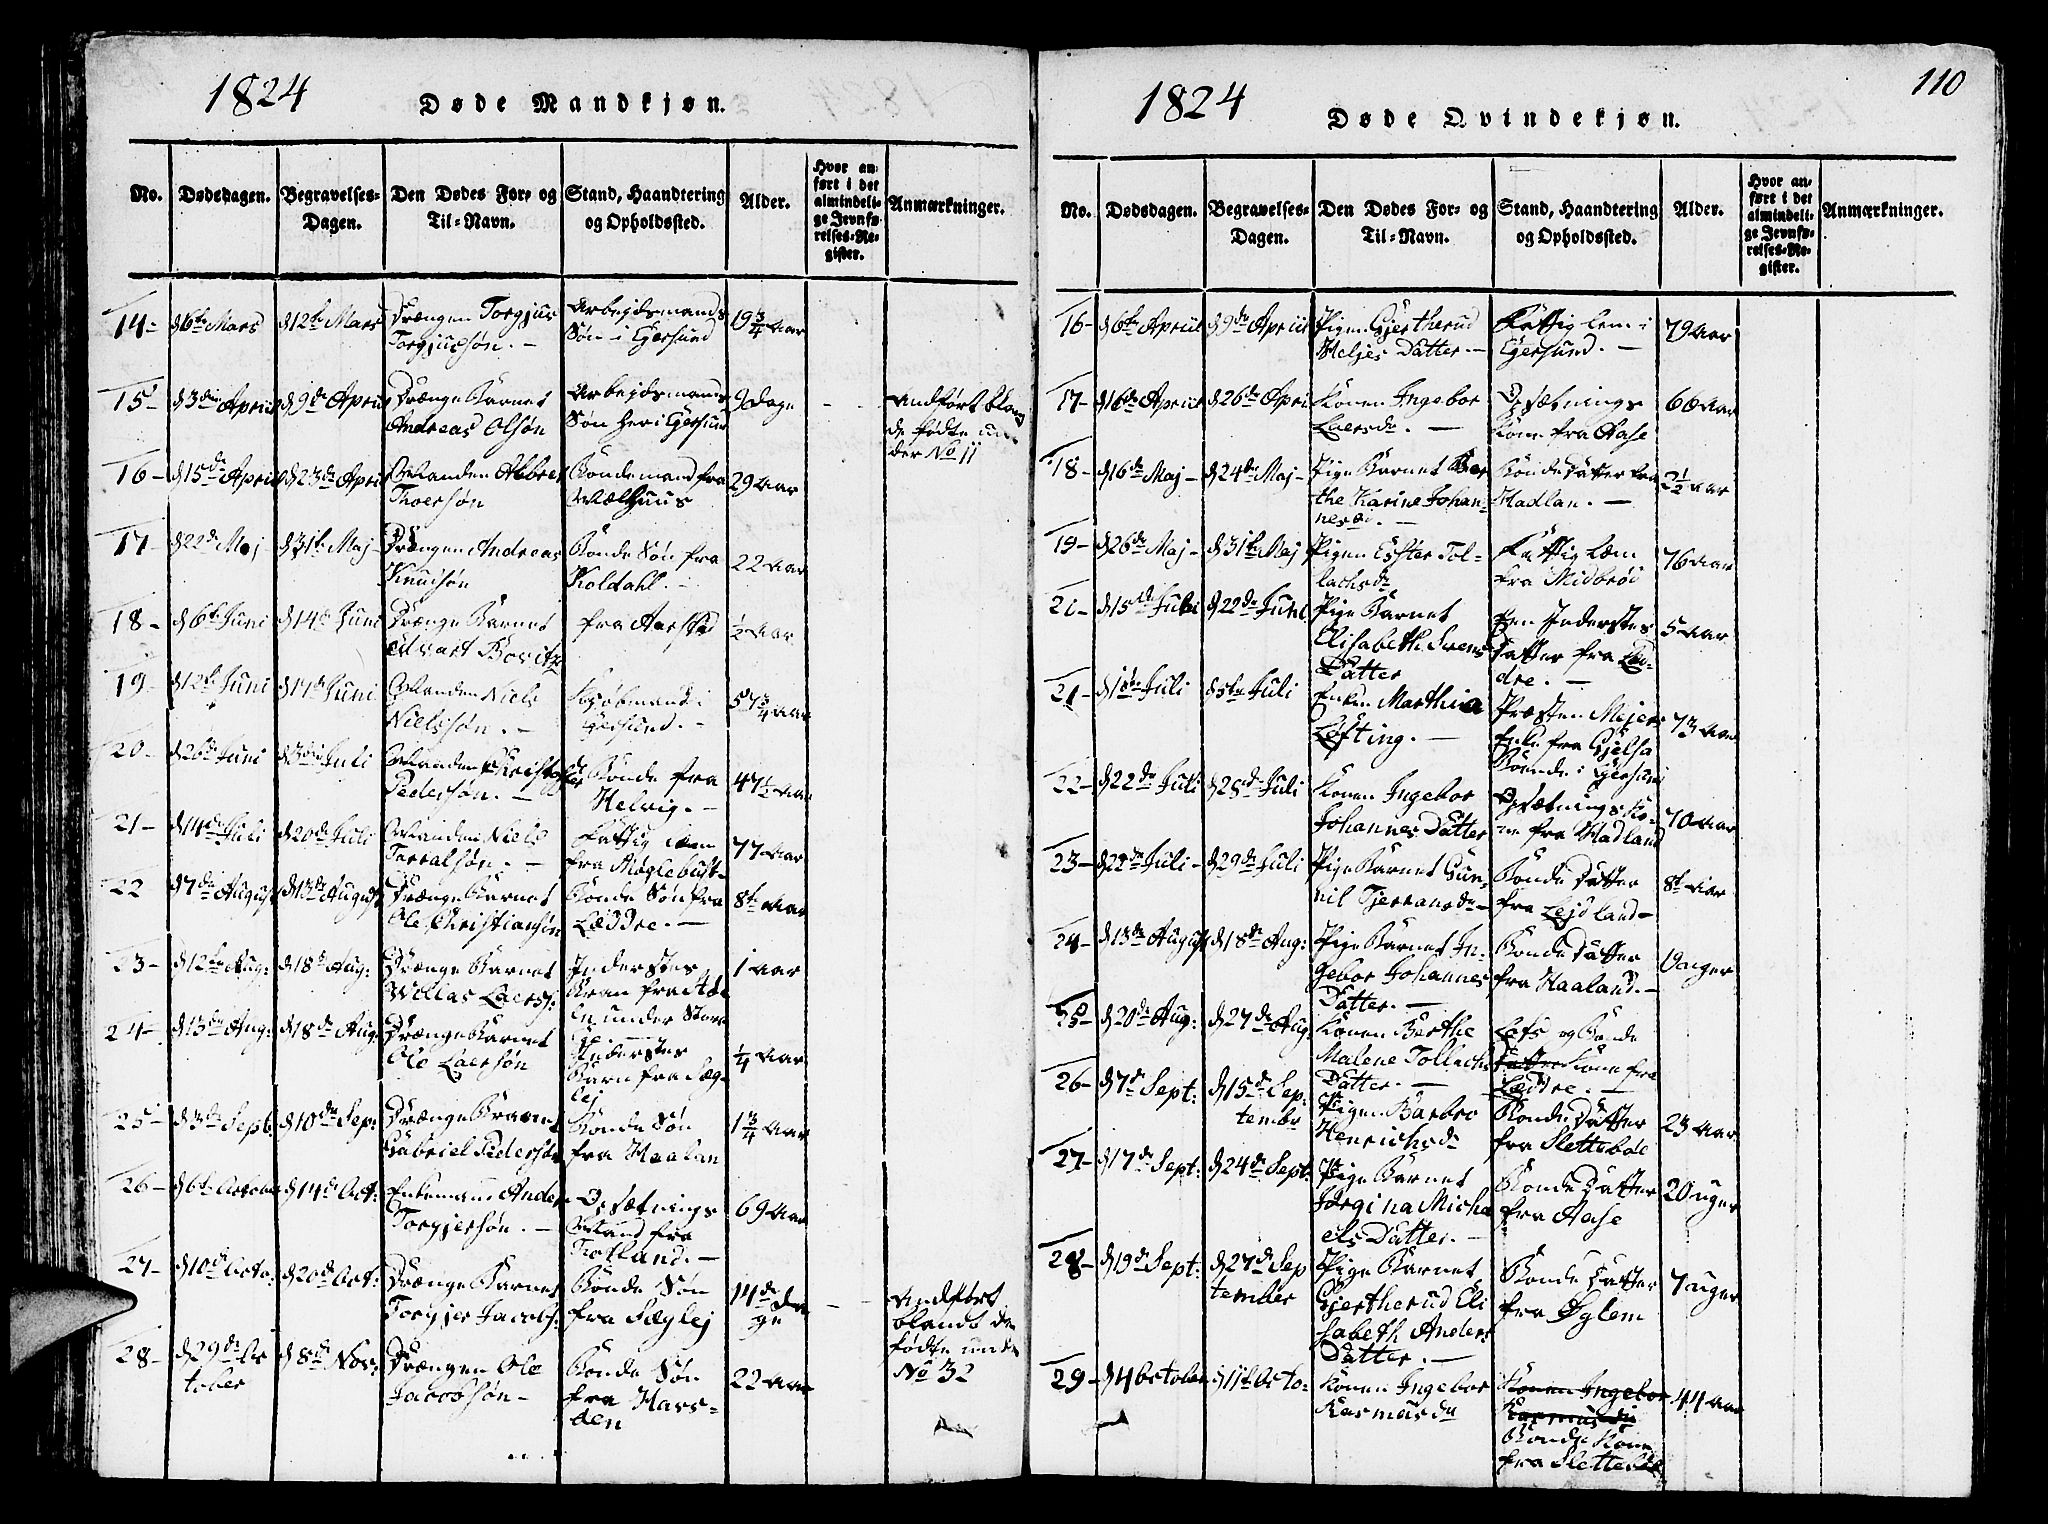 1824
Døde Mandkjøn.
No.
Dødsdagen.
Begravelses-
Dagen.
Den Dødes For- og
Til-Navn.
Stand, Haandtering
og Opholdssted.
Alder.
Hvor an-
ført i det
almindeli-
ge Jevnfø-
relses-Re-
gister.
Anmærkninger.
14-
d 12te Mars
Drængen Torgjus
Torgjusøn. -
Arbejdsmands
Søn i Egersund
19 3/4 Aar
15-
d 3die Apriil
d 9de Apriil
Drænge Barnet
Andreas Olsøn
Arbejdsmands
Søn her i Egersund
9 dage
Andført blan
de fødte un
der No 11
16-
d 15de Apriil
d 23de Apriil
Thoersøn
Bondemand fra
29 Aar
17-
d 22de Maj
d 31te Maj-
Drængen Andreas
Knudsøn
Bonde Søn fra
Koldahl. -
22 Aar
18-
d 6te Juni
d 14de Juni
Drænge Barnet
fra Aarstad
1/2 Aar
19-
d 12te Juni
d 17de Juni
Manden Niels
Nielsøn. -
Kjøbmand i
Egersund. -
57 3/4 Aar
20-
d 26de Juni
d 3die Juli
Pedersøn. -
Bonde fra
Helvig. -
47 1/2 Aar
21-
d 14de Juli
d 20de Juli
Manden Niels
Tarralsøn. -
Fattig Lem
fra Møglebust-
77 Aar
22
d 7de August
d 13de August
Drænge Barnet
Ole Christiansøn
Bonde Søn fra
Læddre. -
8te Aar
23-
d 12te Aug:
d 18de Aug:
Drænge Barnet
Willas Laers:
Inderstes
1 Aar
24-
d 13de Aug:
d 18de Aug:
Drænge Barnet
Ole Laersøn
Inderstes
Barn fra Sæg-
lej
1/4 Aar
25-
d 3de Sept:
d 10de Sep:
Gabriel Pedersøn
Bonde Søn
fra Haalan
1 3/4 Aar
26-
d 6te October
d 14de Oct:
Enkemand Anders
Torgjersøn. -
Opsætnings
Mand fra
69 Aar
27-
d 10de Octo:
d 20de Oct:
Drænge Barnet
Torgjer Jacobs:
Bonde Søn
fra Sæglej
14de da
ge
Andført
blandt de
fødte under
No 32
28-
d 29de Oc
tober
d 8de Nov:
Drængen Ole
Jacobsøn-
Bonde Søn
22 Aar
1824
Døde Qvindekjøn.
110
No.
Dødsdagen.
Begravelses-
Dagen.
Den Dødes For- og
Til-Navn.
Stand, Haandtering
og Opholdssted.
Alder.
Hvor an-
ført i det
almindeli-
ge Jevnfø-
relses-Re-
gister.
Anmærkninger.
16-
d 6te Apriil
d 9de Apriil
Pigen Gjertherud
Heljes Datter-
Fattig Lem i
Egersund. -
79 Aar
17-
d 16de Apriil
d 26de Apri
Konen Ingebor
Laersdr. -
Opsætnings
Kone fra Aase
66 Aar
18-
d 16de Maj-
d 24de Maj-
Pige Barnet Ber
the Karine Johan-
nesdr. -
Bonde Datter fra
Hadlan. -
2 1/2 Aar
19-
d 26de Maj-
d 31te Maj
Pigen Esster Tol-
lachsdr
Fattig Læm
fra Midbrød
76 Aar
d 15de Juni
d 22de Juni
Pige Barnet
Elisabeth Svens
Datter
En Inderstes
Datter fra Læd-
dre. -
5 Aar
21-
d 1ste Juli
d 5te Juli
Enken Marthia
Løfting. -
Præsten Mejers
Enke fra Gjelsa
Boende i Egersund
73 Aar
22-
d 22de Juli
d 28de Juli
Konen Ingebor
Johannes Datter
Opsætnings Ko-
ne fra Hadland
70 Aar
23-
d 22de Juli-
d 29de Juli
Pige Barnet Gun-
nil Tjeransdr-
Bonde Datter
fra Lejdland-
8te Aar
24-
d 13de August
d 18de Aug:
Pige Barnet In-
gebor Johannes
Datter. -
Bonde Datter
fra Haaland. -
25-
d 20de Aug:
d 27de Aug:
Konen Berthe
Malene Tollachs
Datter. -
Læddre. -
26-
d 7de Sept:
d 15de Sep-
tembr
Pigen Barbro
Henrichsdr
Bonde Datter
fra Slettebøe
23 Aar
27-
d 17de Sept:
d 24de Sept:
Pige Barnet
Jørgina Micha
els Datter. -
Bonde Datter
fra Aase
20 uger
28-
d 19de Sept:
d 27de Sep
tember
Pige Barnet
Gjertherud Eli
sabeth Anders
Datter. -
Bonde Datter
fra Øglem
7 uger
29-
d 4 October
d 11te Octo-
Konen Ingebor
Rasmusdr
Konen Ingebor
Rasmusdr
Bonde Kone
fra Slettebøe
44 Aar